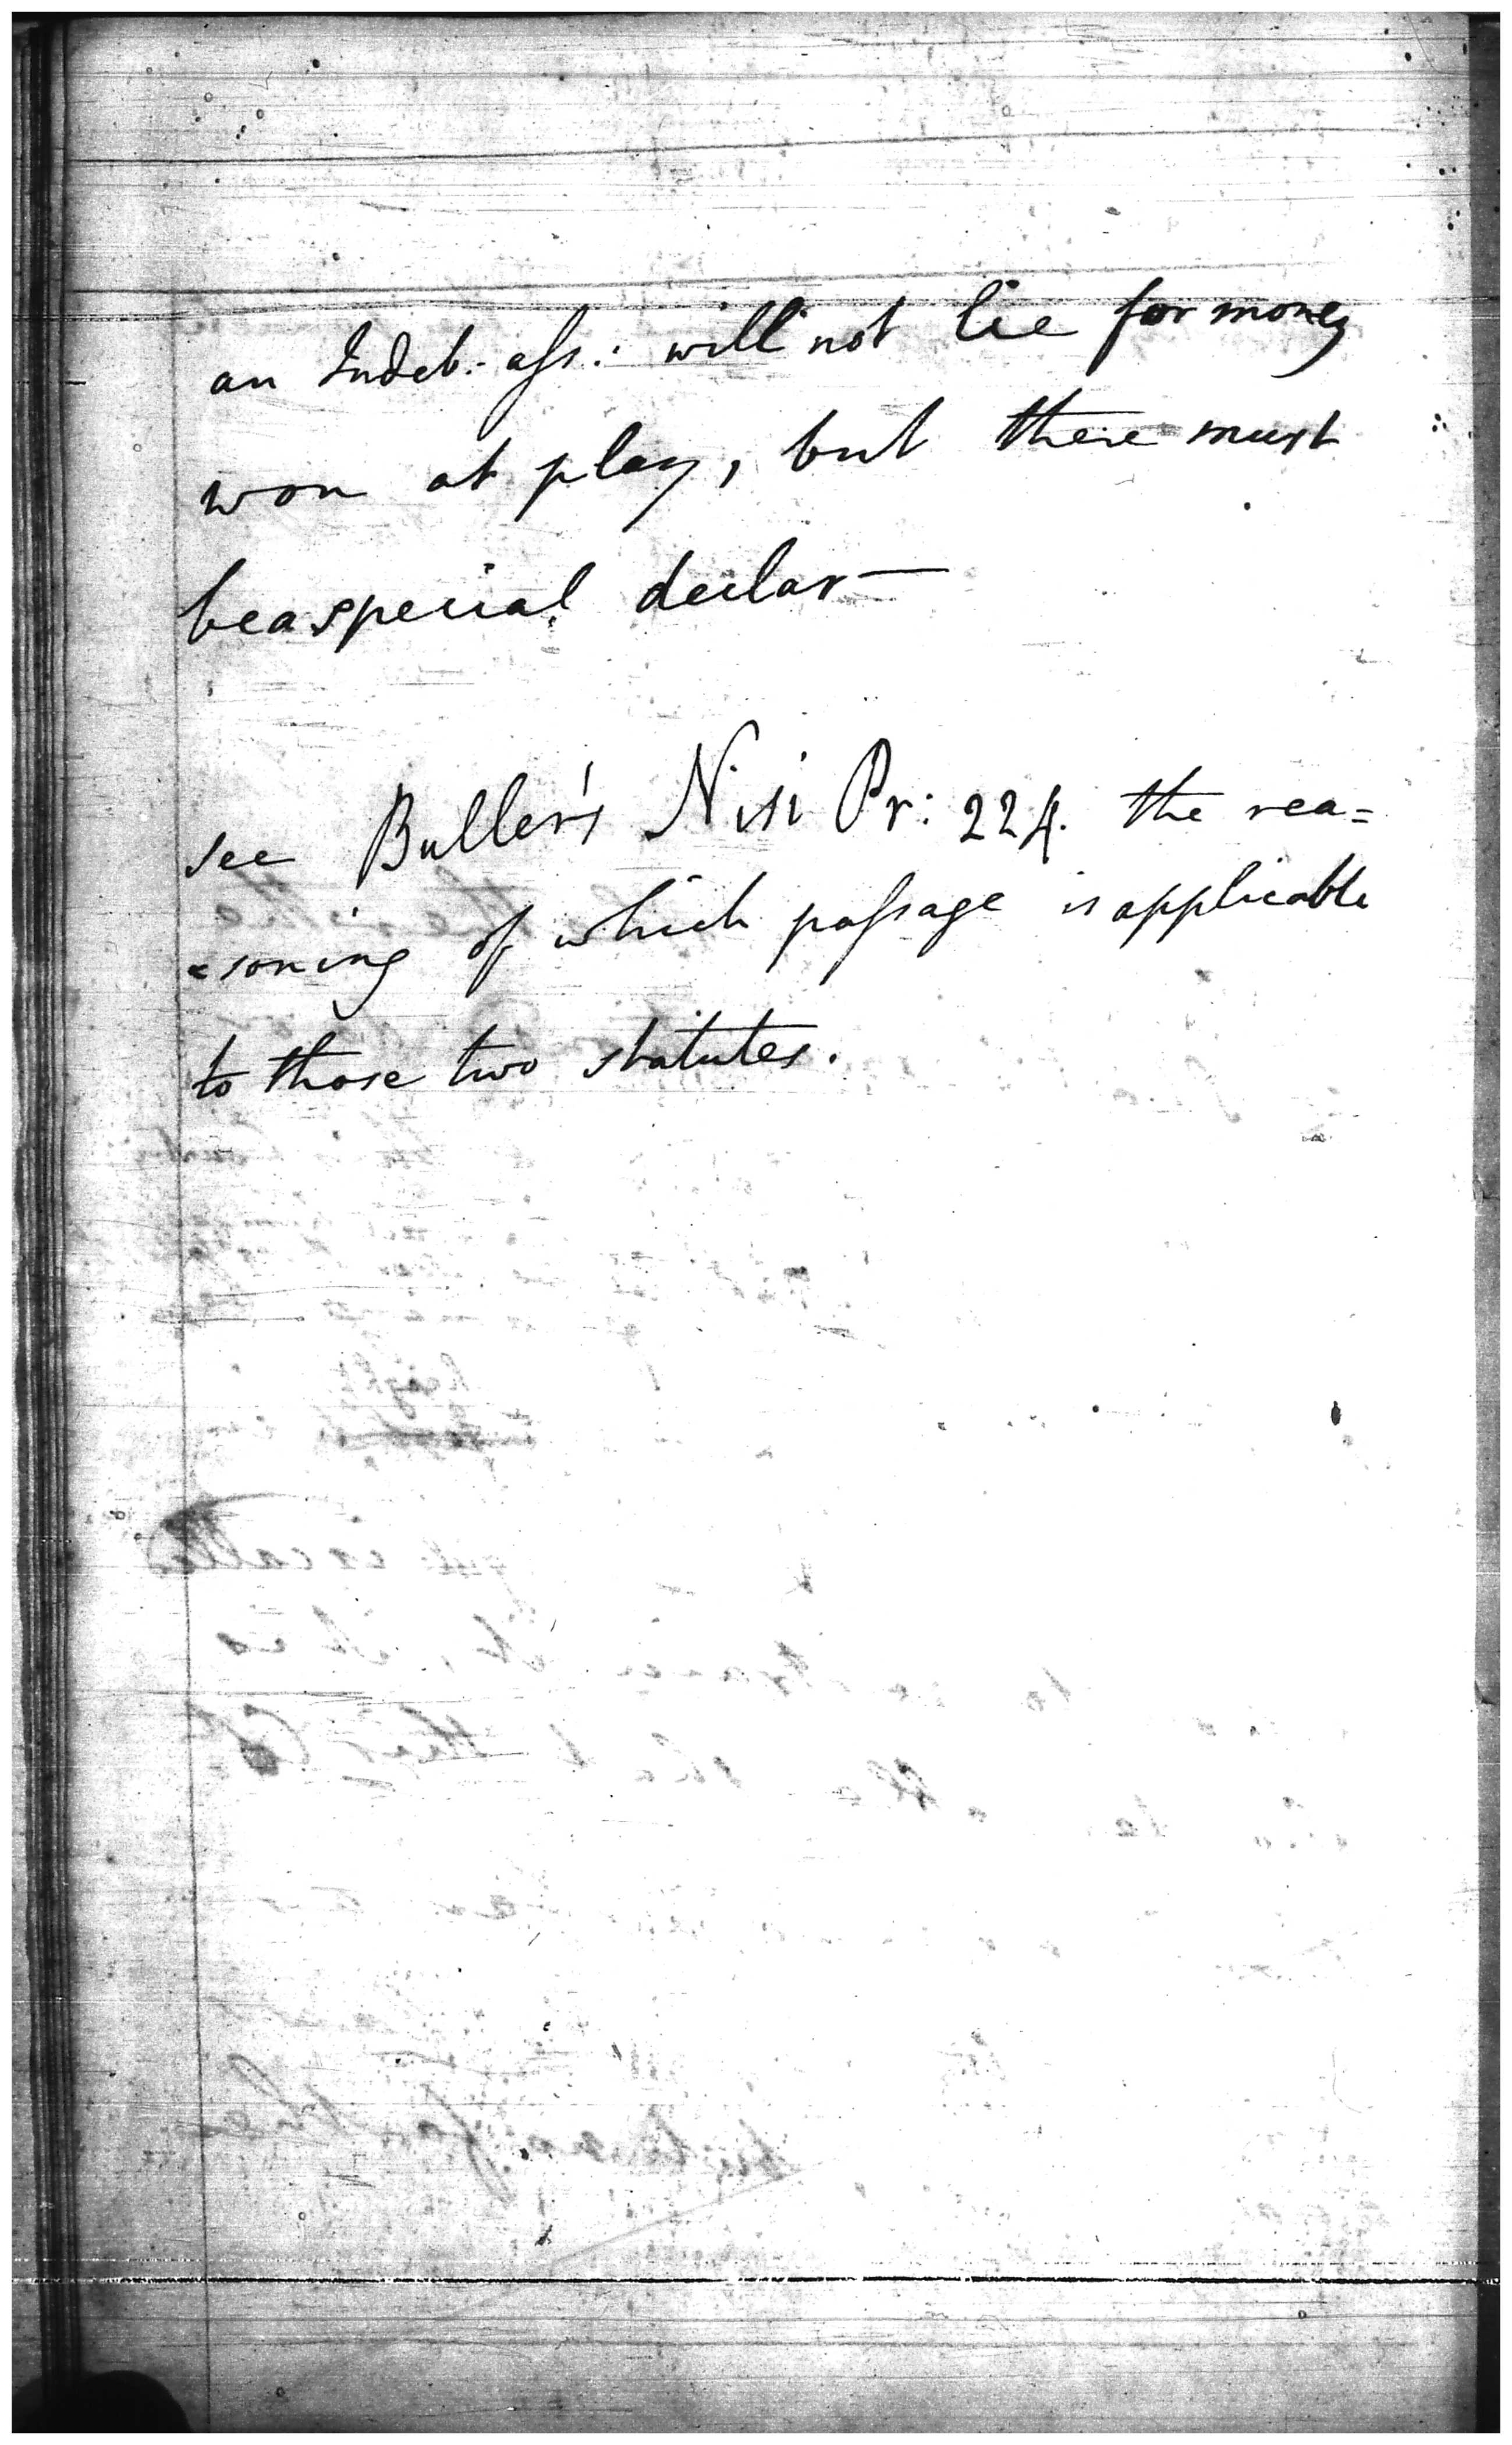 an Indeb: ass: will not lie for money
won at play, but there must
be a special declar—
see Buller's Nisi Pr: 224. the rea=
=soning of which passage is applicable
to those two statutes.